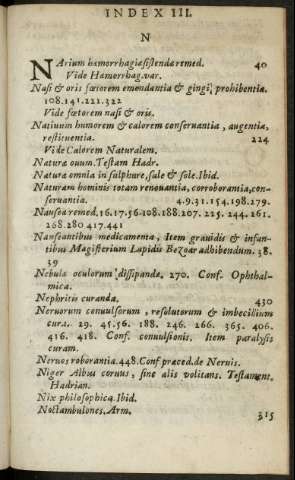 INDEX III.
N
NArium hæmorrhagiæ sistenda remed. 40
Vide Hæmorrhag. var.
Nasi & oris fœtorem emendantia & gingi. prohibentia.
108.141.222.322
Vide fœtorem nasi & oris.
Natiuum humorem & calorem conseruantia, augentia,
restituentia. 224
Vide Calorem Naturalem.
Naturæ ouum. Testam Hadr.
Natura omnia in sulphure, sale & sole. Ibid.
Naturam hominis totam renouantia, corroborantia, con-
seruantia. 4.9.31.154.198.279.
Nausea remed. 16.17.56.108.188.207. 225. 244. 261.
268.280 417.441
Nauseantibus medicamenta, Item grauidis & infan-
tibus Magisterium Lapidis Bezoar adhibendum. 38.
39
Nebula oculorum dissipanda. 270. Conf. Ophthal-
mica.
Nephritis curanda. 430
Neruorum conuulsorum, resolutorum & imbecillium
cura. 29. 45.56. 188. 246. 266. 365. 406.
416. 418. Conf. conuulsionis. Item paralysis
curam.
Neruos roborantia. 448. Conf præced. de Neruis.
Niger Albus coruus, sine alis volitans. Testament.
Hadrian.
Nix philosophica. Ibid.
Noctambulones. Arm. 315